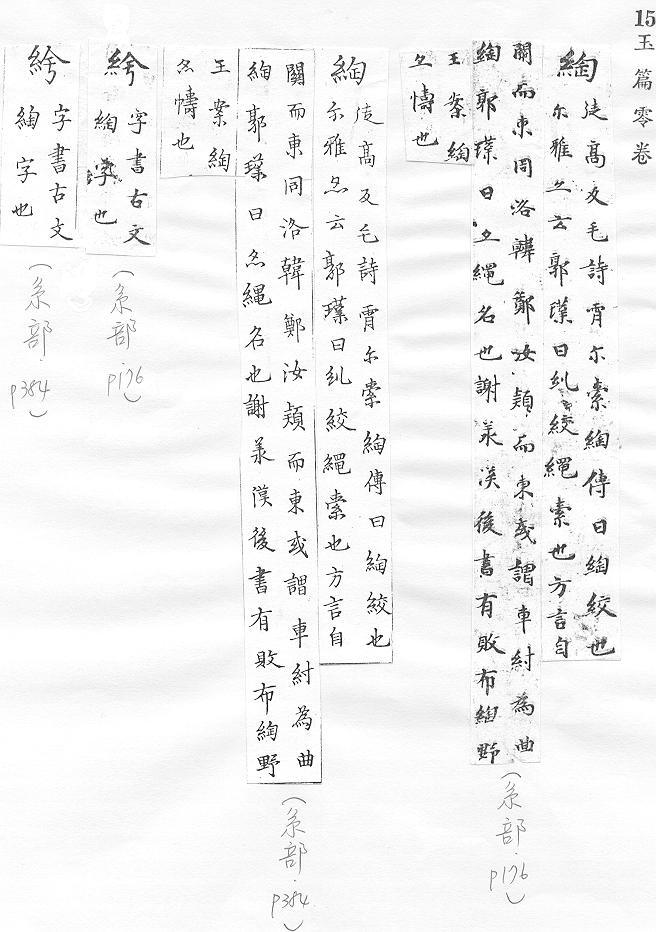 15
玉篇零卷
綯 徒高反毛詩霄尔索綯傳曰綯絞也
尔雅亦云郭璞曰糺絞繩索也方言自
關而東周洛韓鄭汝潁而東或謂車紂為曲
綯郭璞曰亦繩名也謝羕漢後書有敗布綯野
王案綯
亦幬也
綯 徒高反毛詩霄尔索綯傳曰綯絞也
尔雅亦云郭璞曰糺絞繩索也方言自
關而東同洛韓鄭汝潁而東或謂車紂為曲
綯郭璞曰亦繩名也謝羕漢後書有敗布綯野
王案綯
亦幬也
字書古文
綯字也
字書古文
綯字也
(糸部.p176)
(糸部.p384)
(糸部.p176)
(糸部.p384)